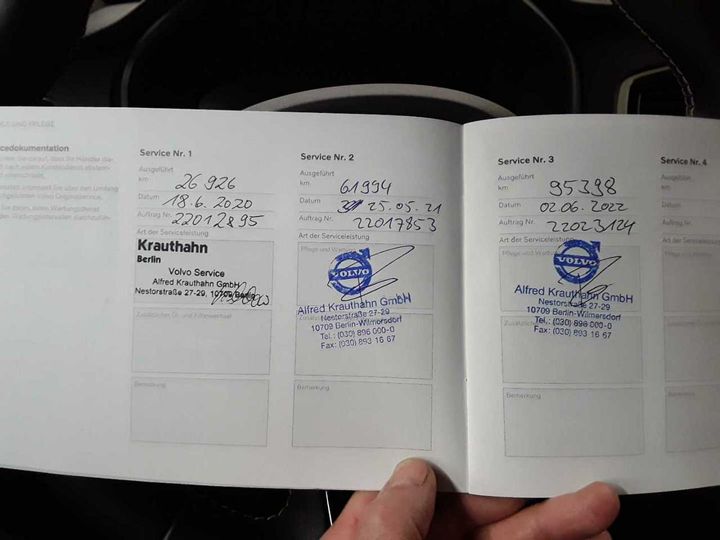 cedokumentation
Service Nr. 1
Ausgeführt
km 26926
Datum 18.6.2020
Auftrag Nr. 22012895
Art der Serviceleistung
Krauthahn
Berlin
Volvo Service
Alfred Krauthahn GmbH
Nestorstraße 27-29, 10709 Berlin
Zusätzlicher Öl- und Filterwechsel
Bemerkung
Service Nr. 2
Ausgeführt
km 61994
Datum 25.05.21
Auftrag Nr. 22017853
Art der Serviceleistung
Pflege und Wartung
VOLVO
Alfred Krauthahn GmbH
Nestorstraße 27-29
10709 Berlin-Wilmersdorf
Tel.: (030) 896 000-0
Fax: (030) 893 16 67
Bemerkung
Service Nr. 3
Ausgeführt
km 95398
Datum 02.06.2022
Auftrag Nr. 22023124
Art der Serviceleistung
Pflege und
VOLVO
Alfred Krauthahn GmbH
Nestorstraße 27-29
10709 Berlin-Wilmersdorf
Tel.: (030) 896 000-0
Fax: (030) 893 16 67
Bemerkung
Service Nr. 4
Ausgeführt
km
Datum
Auftrag Nr.
Art der